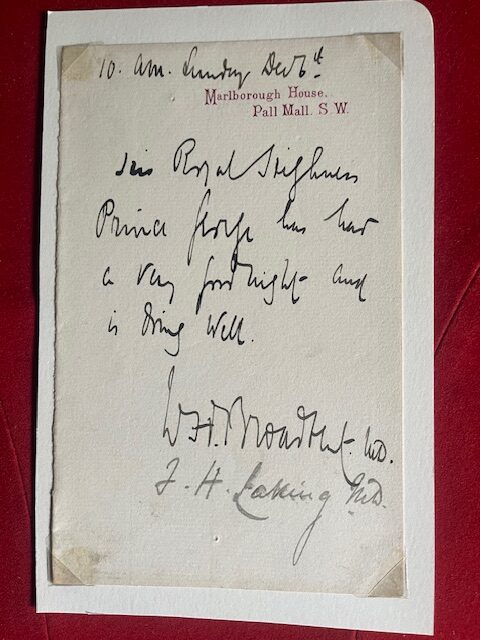 10. am. Sunday Dec 6th
Marlborough House.
Pall Mall. S.W.
His Royal Highness
Prince George has had
a very good night and
is doing well.
W.H. Broadbent. M.D.
F. H. Laking M.D.